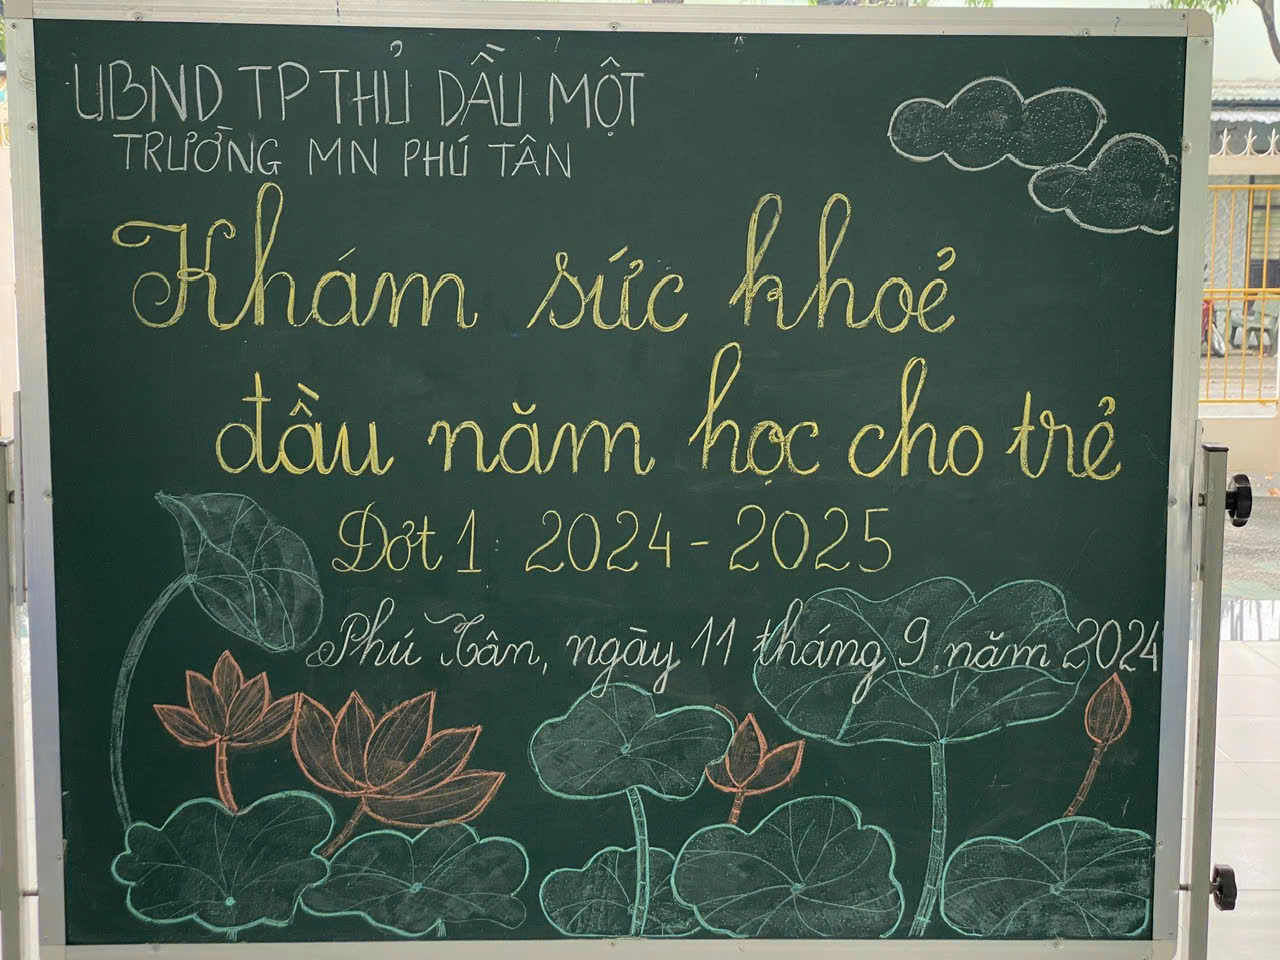 UBND TP THỦ DẦU MỘT
TRƯỜNG MN PHÚ TÂN
Khám sức khoẻ
đầu năm học cho trẻ
Đợt 1: 2024 - 2025
Phú Tân, ngày 11 tháng 9 năm 2024